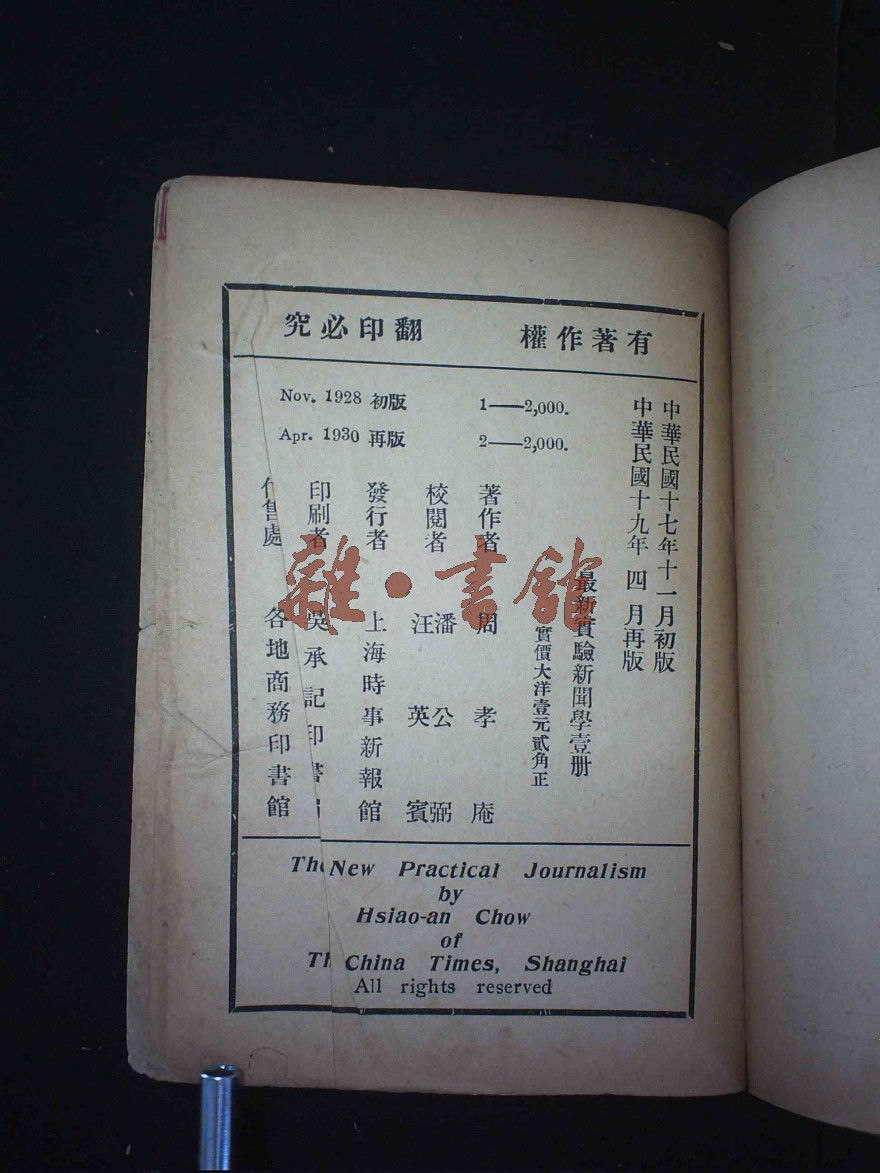 有著作權 翻印必究
中華民國十七年十一月初版
中華民國十九年 四 月再版
Nov. 1928 初版 1——2,000.
Apr. 1930 再版 2——2,000.
最新實驗新聞學壹册
實價大洋壹元貳角正
著作者 周孝庵
校閱者 潘公弼 汪英賓
發行者 上海時事新報館
印刷者 吳承記印書
代售處 各地商務印書館
The New Practical Journalism
by
Hsiao-an Chow
of
Th China Times, Shanghai
All rights reserved
雜·書館